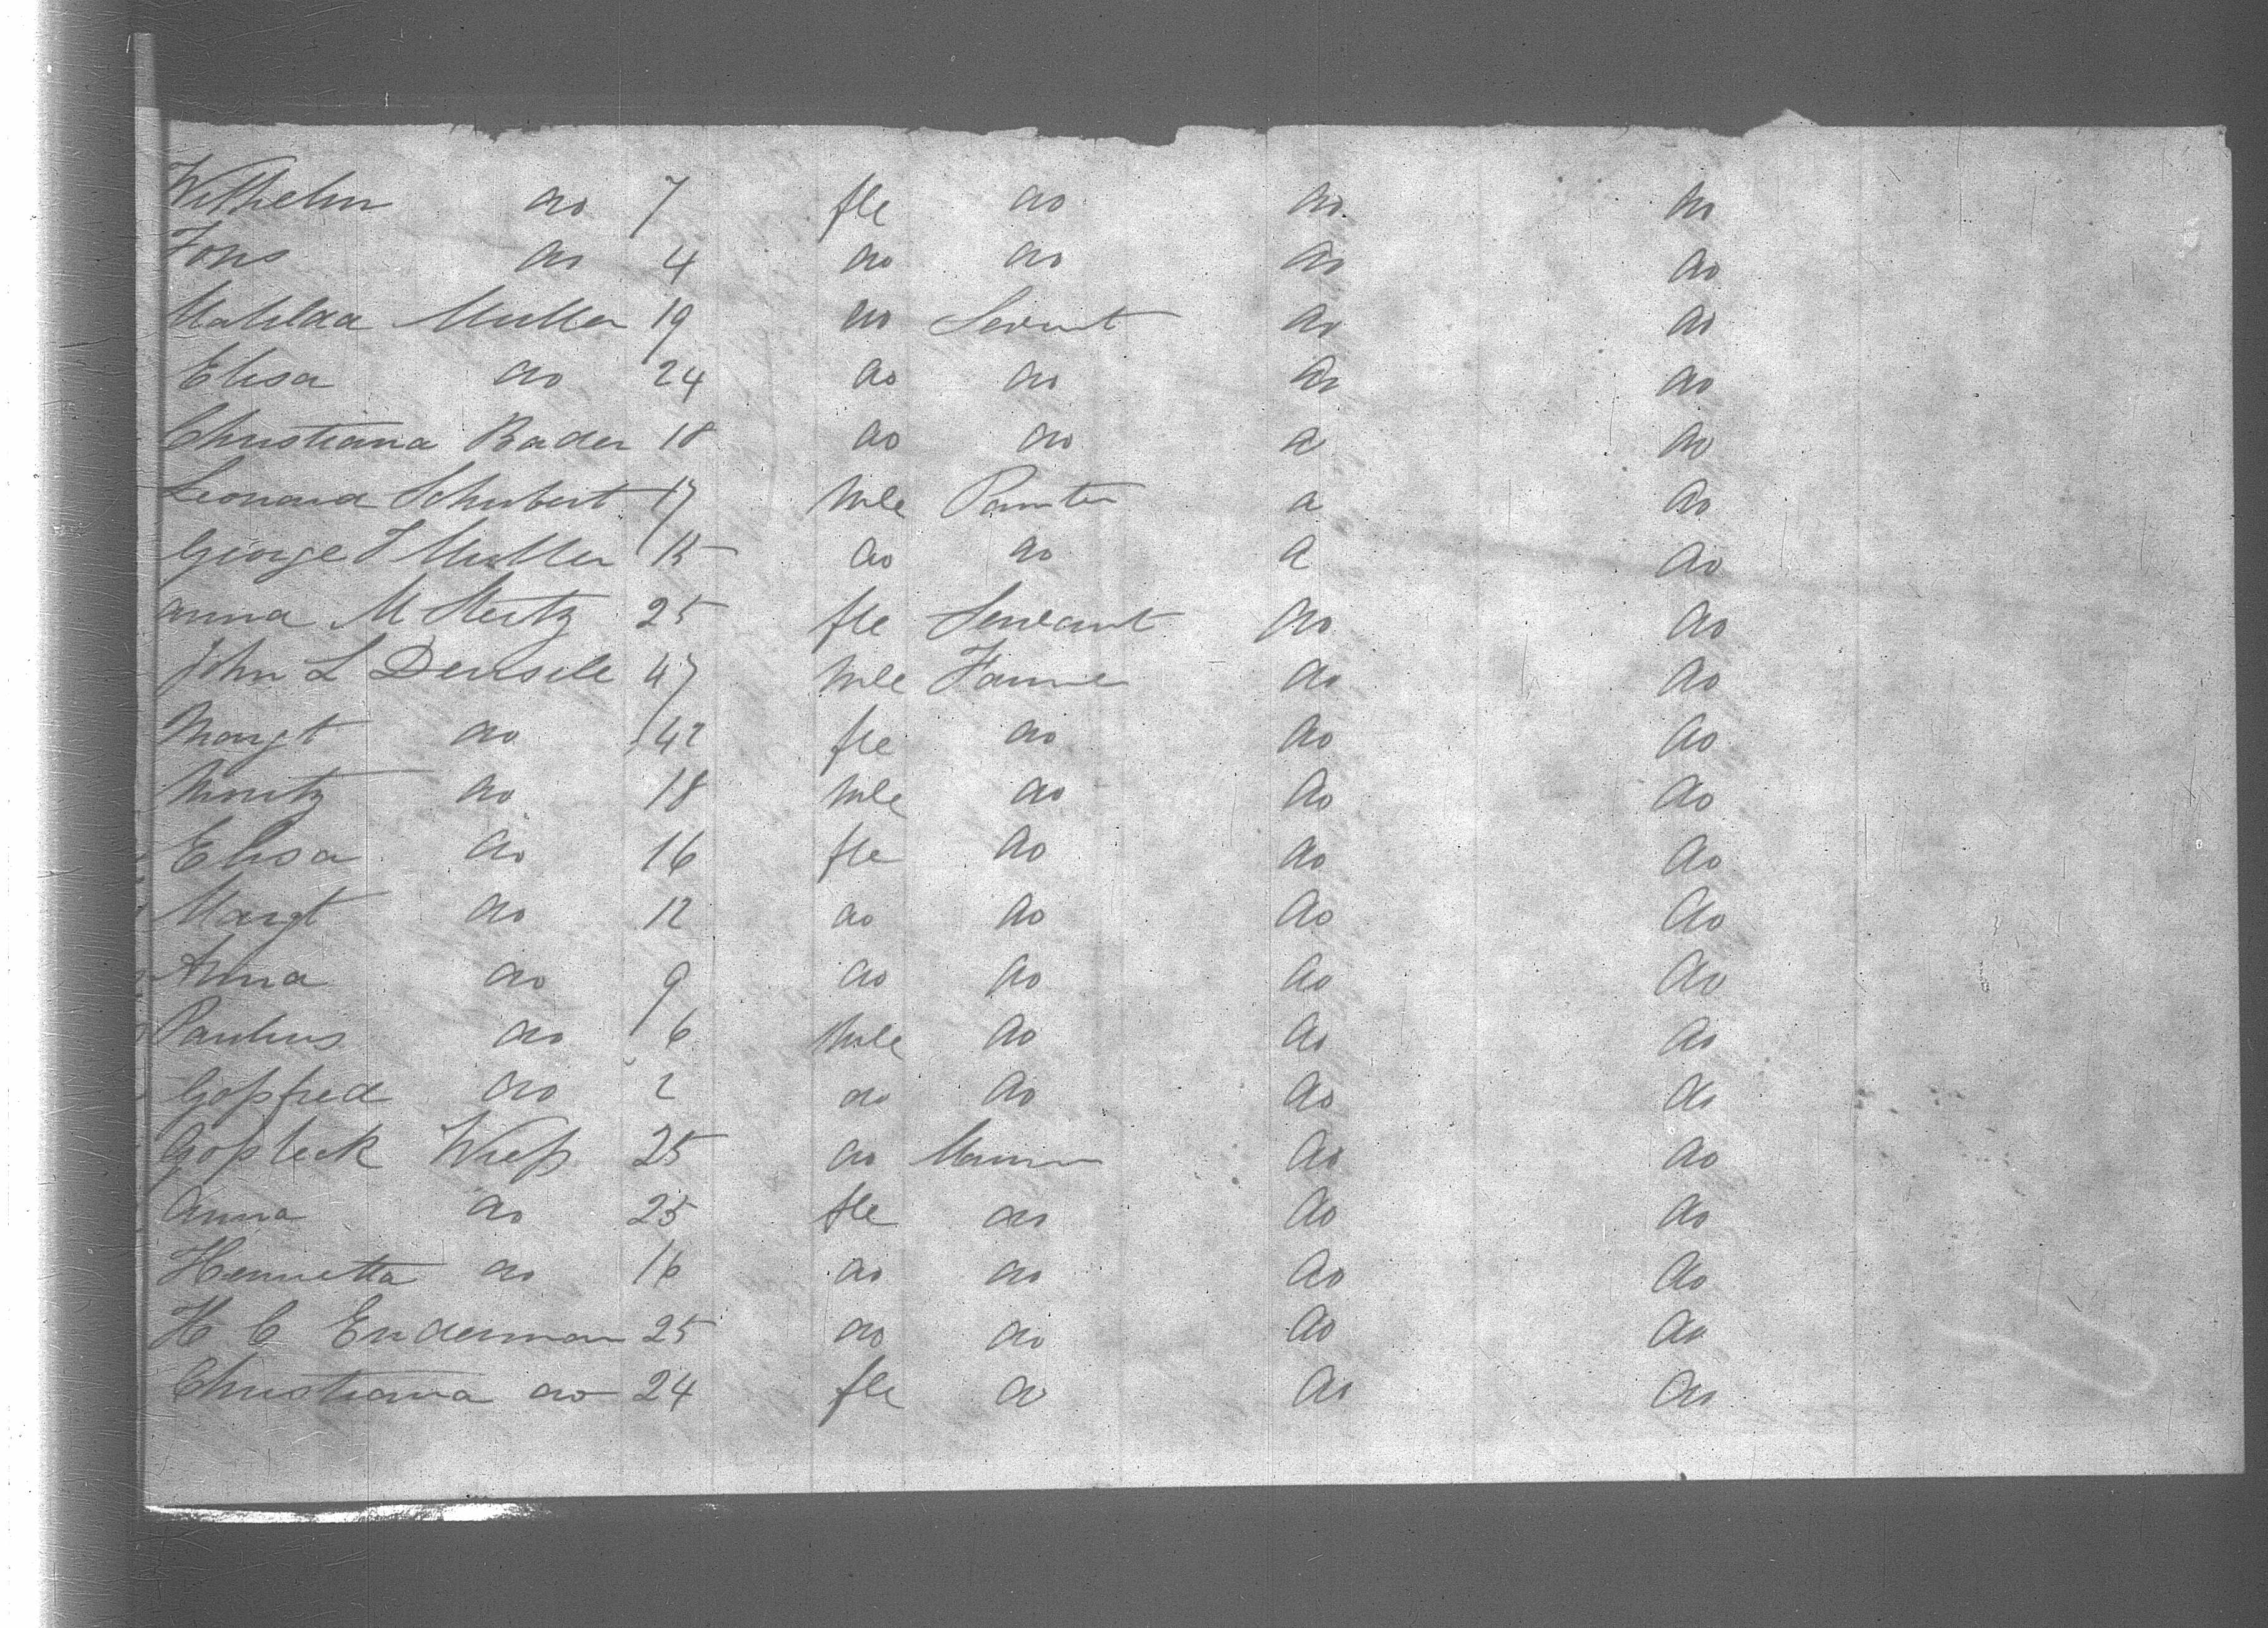 Wilhelm do 7 fle do do do
Fons do 4 do do do do
Mathilda Muller 19 do Servant do do
Elisa do 24 do do do do
Christiana Bader 18 do do do do
Leonard Schubert 17 Mle Painter do do
George F Muller 15 do do do do
Anna M Stertz 25 fle Servant do do
John L Deusele 47 Mle Farmer do do
Margt do 42 fle do do do
Moritz do 18 Mle do do do
Elisa do 16 fle do do do
Margt do 12 do do do do
Anna do 9 do do do do
Paulus do 6 Mle do do do
Gopfred do 2 do do do do
Gopleck Wiep 25 do do do
Anna do 25 fle do do do
Henrietta do 16 do do do do
H C Enderman 25 do do do do
Christiana do 24 fle do do do